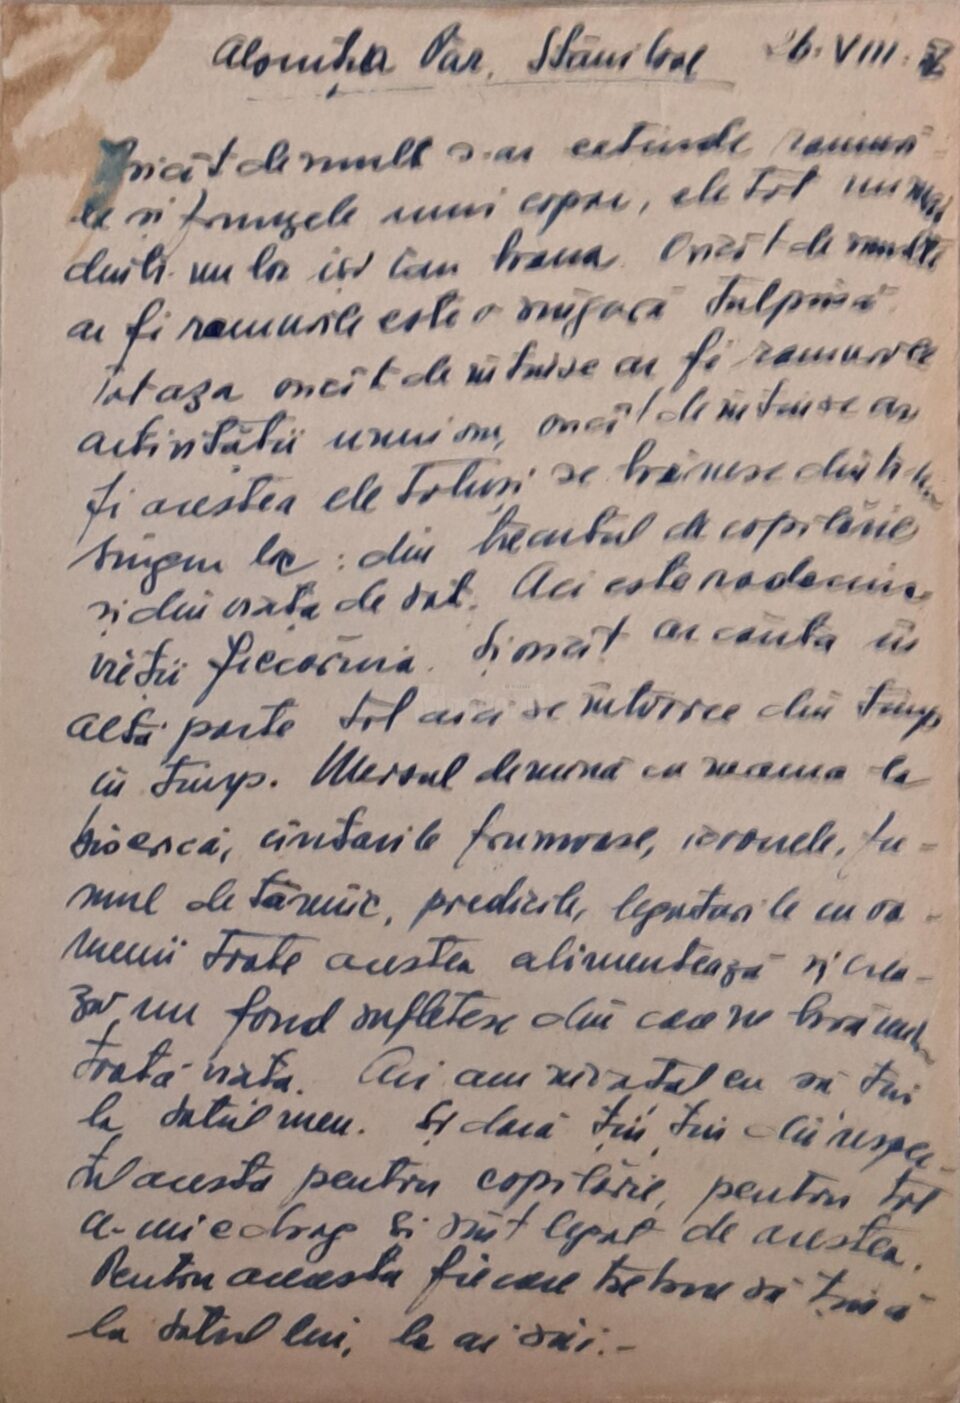 Părr. Stăniloae 26. VIII.
Oricât de mult s-ar extinde ramuri-
le și frunzele unui copac, ele tot
dintr-un loc își iau hrana. Oricât de multe
ar fi ramurile este o singură tulpină
Tot așa oricât de întinse ar fi ramurile
activității unui om, oricât de întinse ar
fi acestea ele totuși se hrănesc dintr-un
singur loc: din trecutul de copilărie
și din viața de sat. Aci este rădăcina
vieții fiecăruia. Și oricât ar căuta în
altă parte tot aici se întoarce din timp
în timp. Mersul de mînă cu mama la
biserică, cîntările frumoase, icoanele, fu-
mul de tămîie, predicile, legăturile cu oa-
menii toate acestea alimentează și crea-
ză un fond sufletesc din care ne hrănim
toată viața. Aci am învățat eu să țin
la satul meu. Și dacă țin, țin din respec-
tul acesta pentru copilărie, pentru tot
ce mi-e drag și sînt legat de acestea.
Pentru aceasta fiecare trebuie să țină
la satul lui, la ai săi.-